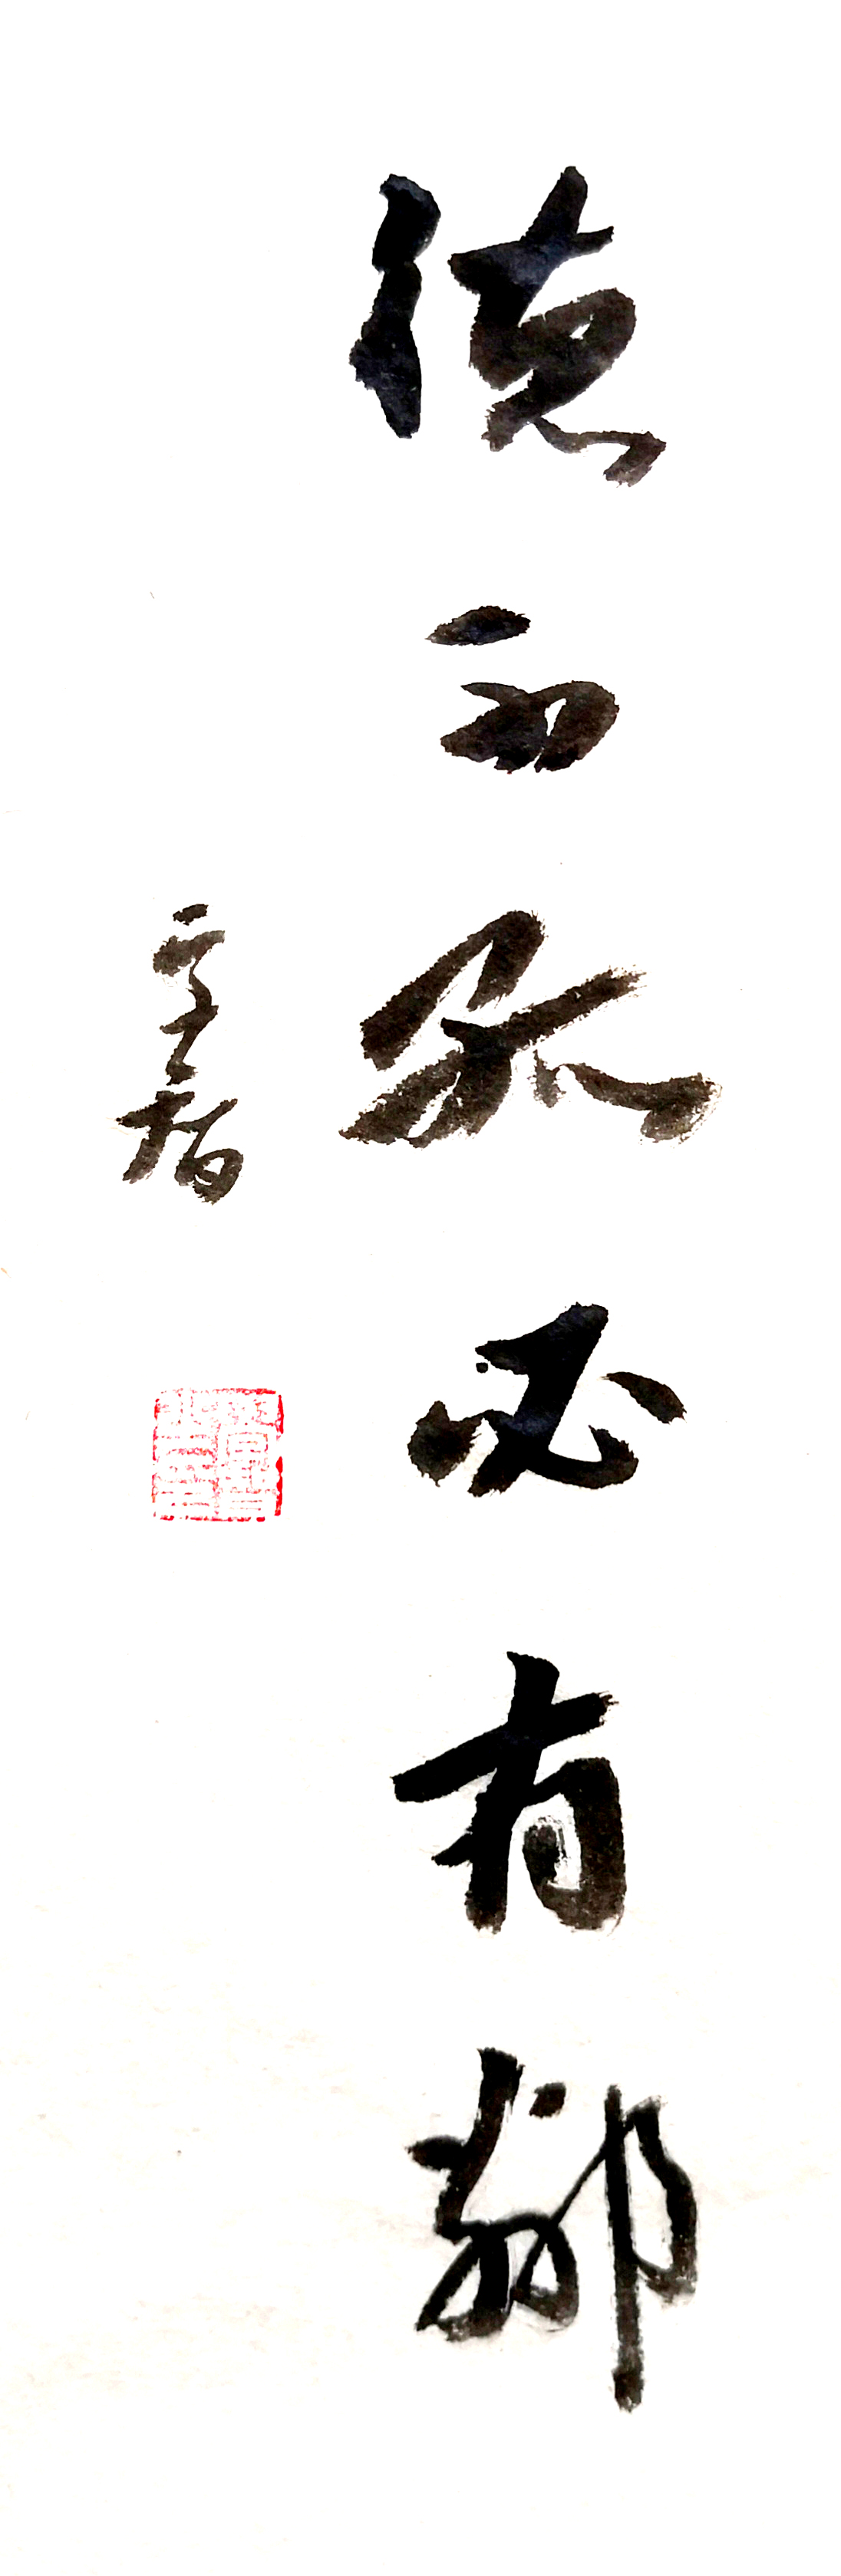 德不孤必有鄰